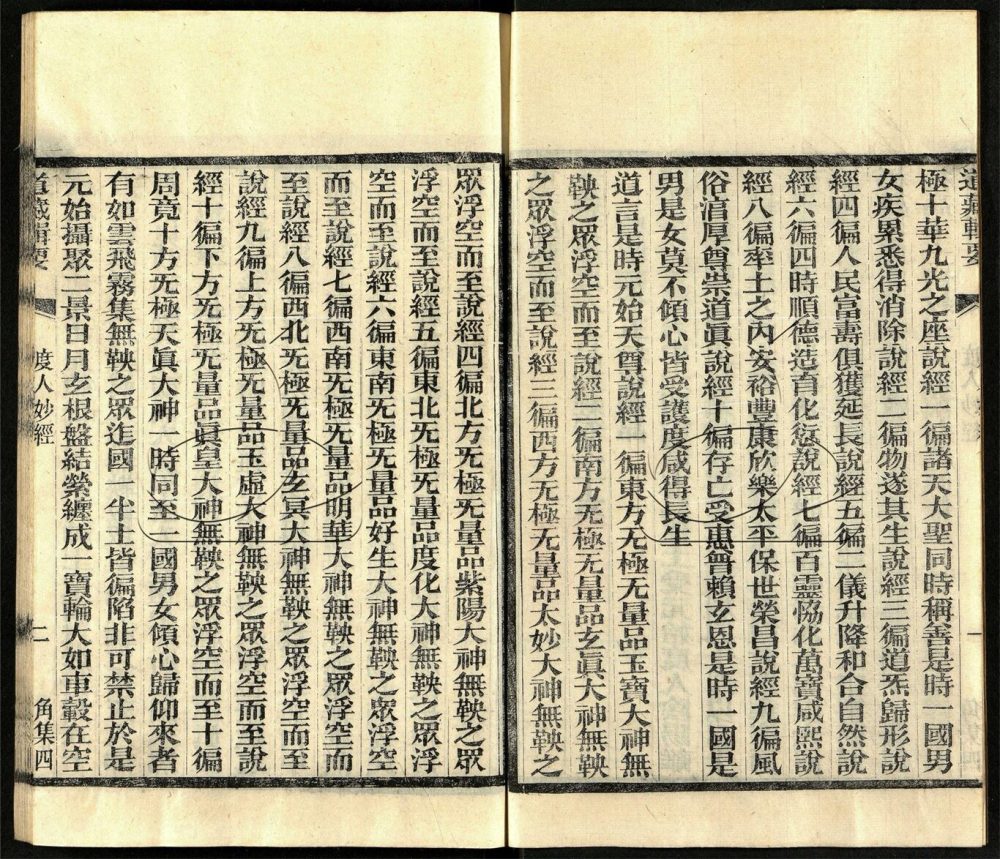 道藏輯要
極十華九光之座說經一徧諸天大聖同時稱善是時一國男
女疾累悉得消除說經二徧物遂其生說經三徧道炁歸形說
經四徧人民富壽俱獲延長說經五徧二儀升降和合自然說
經六徧四時順德造育化愆說經七徧百靈恊化萬寶咸熙說
經八徧率土之內安裕豐康欣樂太平保世榮昌說經九徧風
俗湻厚尊崇道眞說經十徧存亡受惠曾賴玄恩是時一國是
男是女莫不傾心皆受護度咸得長生
道言是時元始天尊說經一徧東方无極无量品玉寶大神無
鞅之眾浮空而至說經二徧南方无極无量品玄眞大神無鞅
之眾浮空而至說經三徧西方无極无量品太妙大神無鞅之
眾浮空而至說經四徧北方无極无量品紫陽大神無鞅之眾
浮空而至說經五徧東北无極无量品度化大神無鞅之眾浮
空而至說經六徧東南无極无量品好生大神無鞅之眾浮空
而至說經七徧西南无極无量品明華大神無鞅之眾浮空而
至說經八徧西北无極无量品玄冥大神無鞅之眾浮空而至
說經九徧上方无極无量品玉虛大神無鞅之眾浮空而至說
經十徧下方无極无量品眞皇大神無鞅之眾浮空而至十徧
周竟十方无極天眞大神一時同至一國男女傾心歸仰來者
有如雲飛霧集無鞅之眾迮國一半土皆徧陷非可禁止於是
元始攝聚二景日月玄根盤結縈纏成一寶輪大如車轂在空
道藏輯要 度人妙經 二 角集四